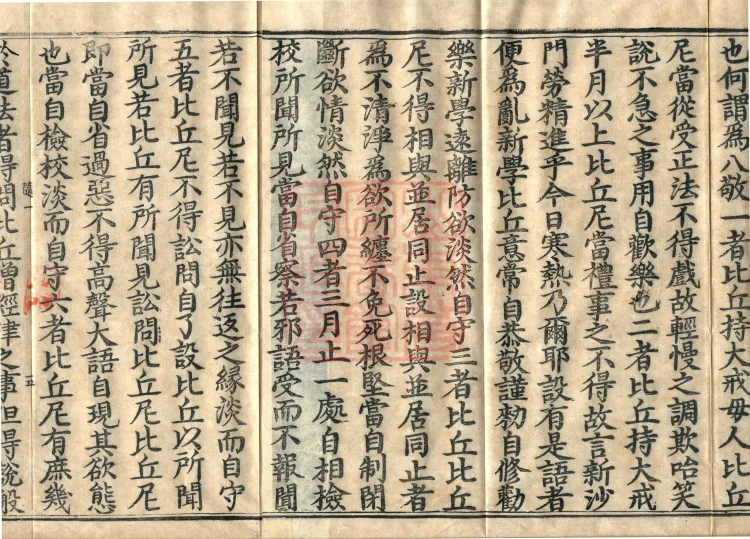 也何謂為八敬一者比丘持大戒毋人比丘
尼當從受正法不得戲故輕慢之調欺咍笑
說不急之事用自歡樂也二者比丘持大戒
半月以上比丘尼當禮事之不得故言新沙
門勞精進乎今日寒熱乃爾耶設有是語者
便為亂新學比丘意常自恭敬謹勑自修勸
樂新學遠離防欲淡然自守三者比丘比丘
尼不得相與並居同止設相與並居同止者
為不清淨為欲所纏不免死根堅當自制閉
斷欲情淡然自守四者三月止一處自相檢
校所聞所見當自省察若邪語受而不報聞
若不聞見若不見亦無往返之緣淡而自守
五者比丘尼不得訟問自了設比丘以所聞
所見若比丘有所聞見訟問比丘尼比丘尼
即當自省過惡不得高聲大語自現其欲態
也當自檢校淡而自守六者比丘尼有庶幾
於道法者得問比丘僧經律之事但得說般